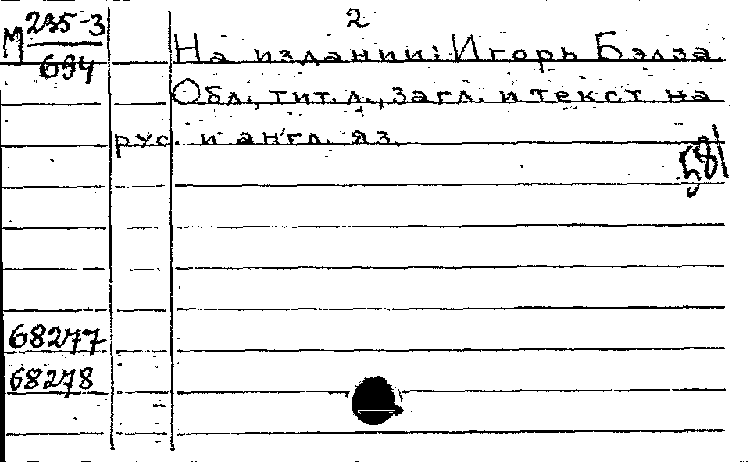 М 235-3
694
2
На издании: Игорь Бэлза
Обл., тит. л., загл. и текст на
рус. и англ. яз.
68277
68278